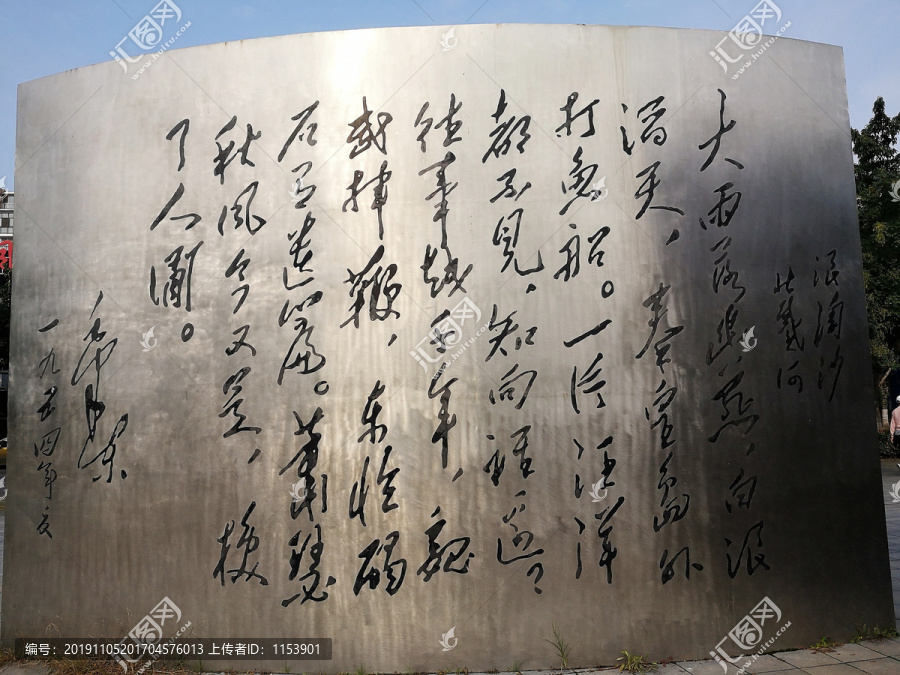 浪淘沙
北戴河
大雨落幽燕,白浪
滔天,秦皇岛外
打鱼船。一片汪洋
都不见,知向谁边?
往事越千年,魏
武挥鞭,东临碣
石有遗篇。萧瑟
秋风今又是,换
了人间。
毛泽东
一九五四年夏
汇图网
www.huitu.com
编号:20191105201704576013 上传者ID:1153901